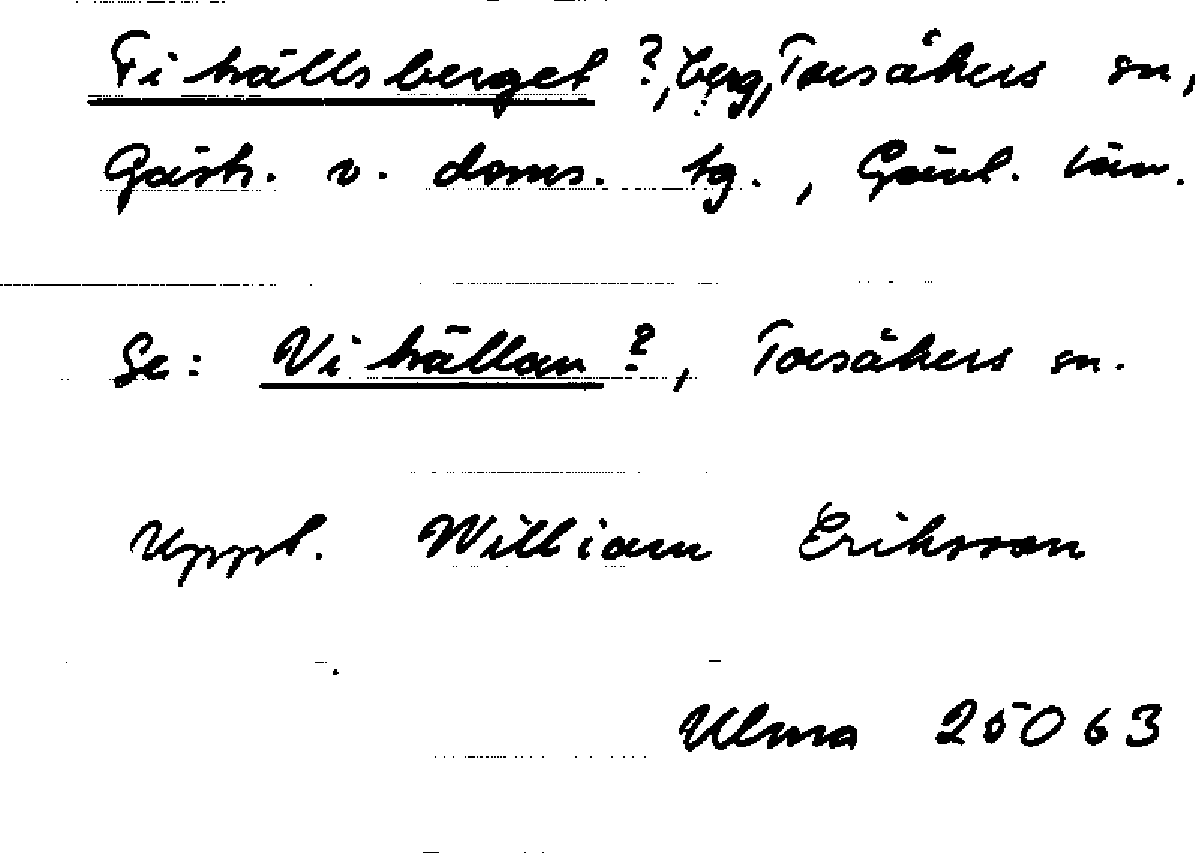 Fi hällsberget ?, berg, Torsåkers sn,
Gästr. v. doms. tg., Gävl. län.
Se: Vi hällan ?, Torsåkers sn.
Uppt. William Eriksson
Ulma 25063